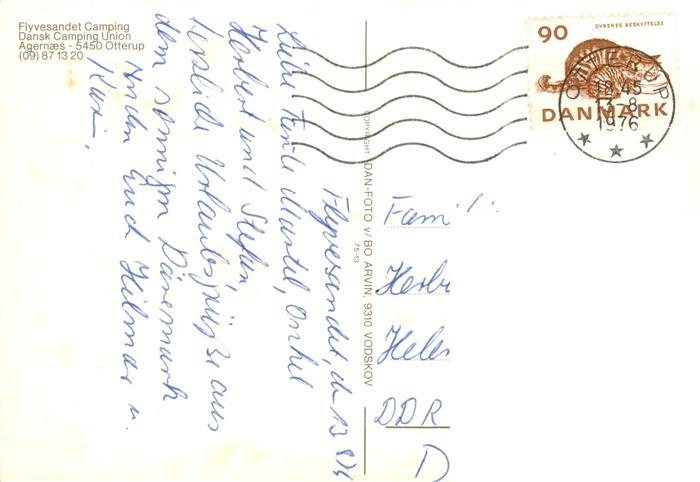 Flyvesandet Camping
Dansk Camping Union
Agernæs - 5450 Otterup
(09) 87 13 20
Flyvesandet, d 13 8 76
Liebe Tante Martel, Onkel
Herbert und Stefan
herzliche Urlaubsgrüße aus
dem sonnigen Dänemark
und Hilmar u.
Kari,
COPYRIGHT DAN-FOTO v/ BO ARVIN, 9310 VODSKOV
75-13
90
DYRENES BESKYTTELSE
DANMARK
OTTERUP
18.45
13.-8.
1976
Famil
Herb
Hele
DDR
D